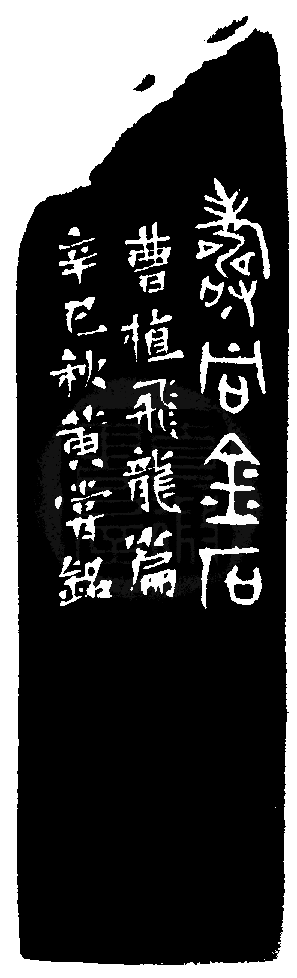 壽同金石
曹植飛龍篇
辛巳秋黃嘗銘